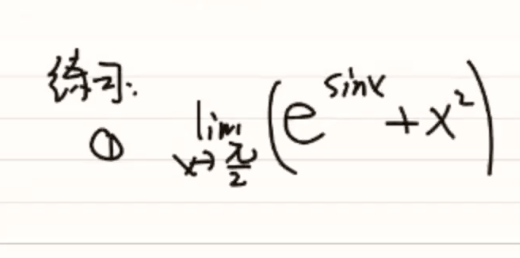 练习:
① lim x→π/2 (e^sinx + x²)